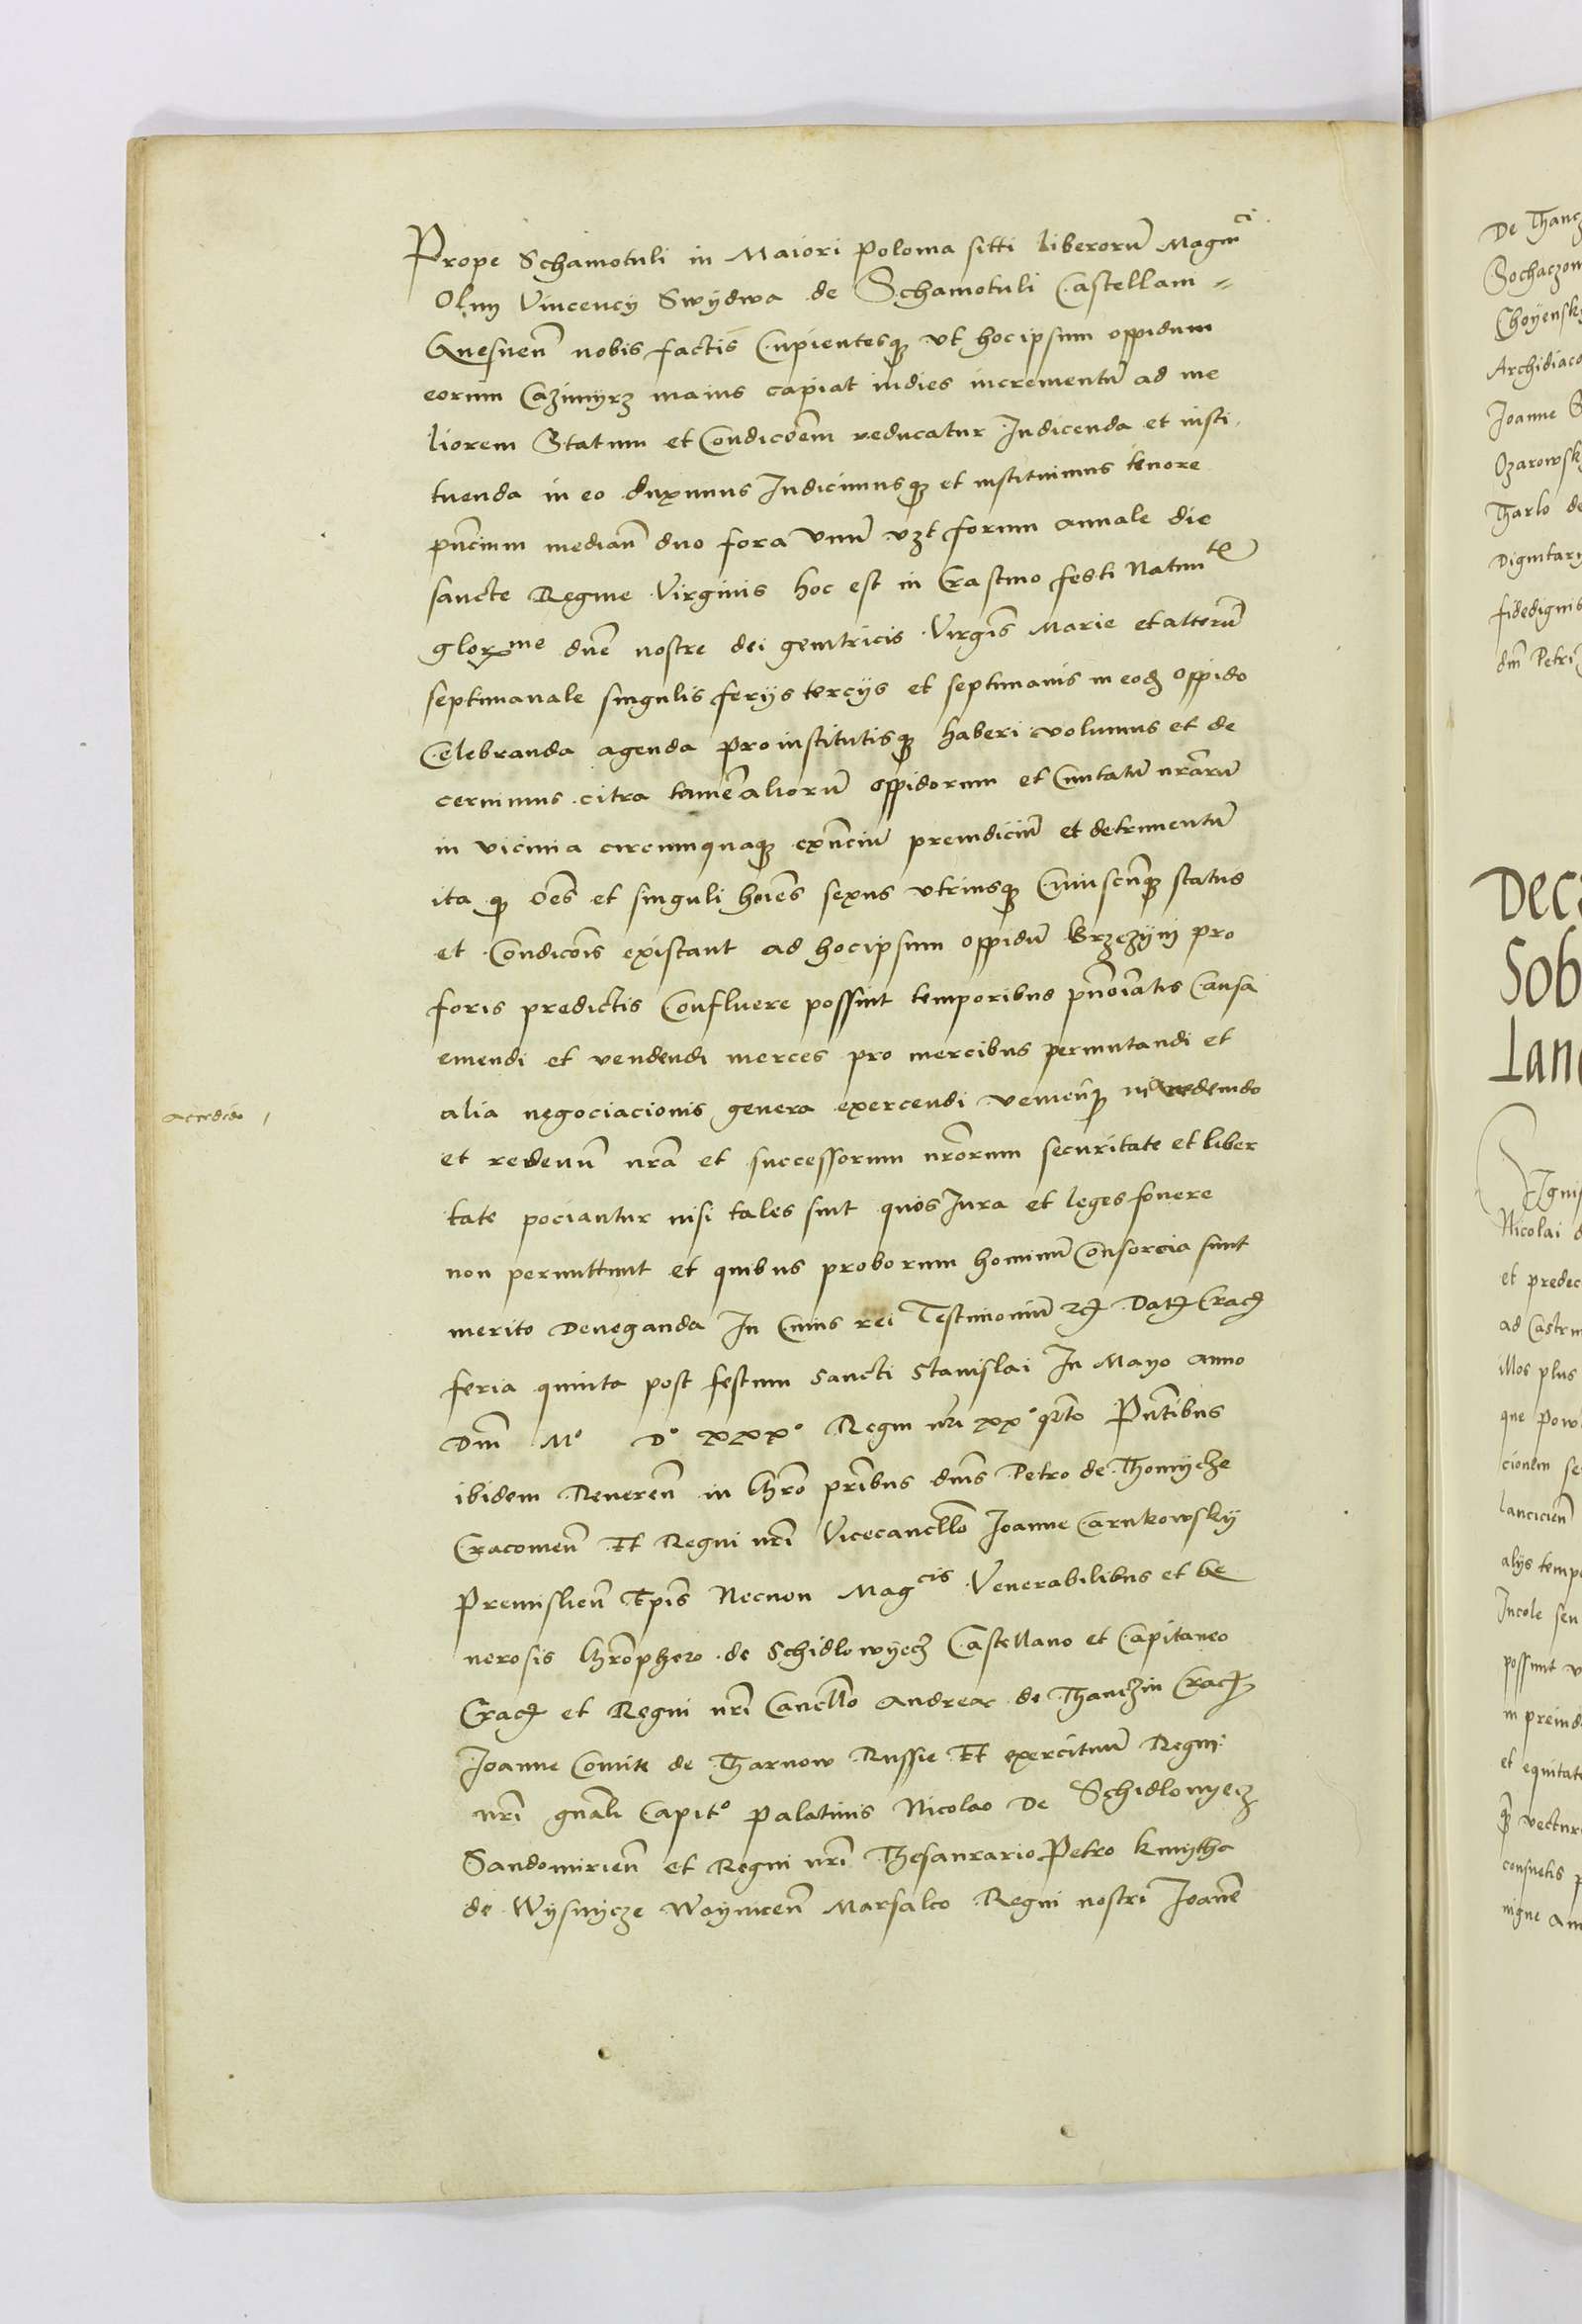 Prope Schamotuli in Maiori Polonia sitti liberorũ Magnci
Olim Vincency Swydwa de Schamotuli Castellani
Gnesneñ nobis factis Cupientesq₃ vt hoc ipsum oppidum
eorum Cazimyrz maius capiat indies incrementũ ad me
liorem Statum et Condicõem reducatur Indicenda et insti
tuenda in eo duximus Indicimusq₃ et instituimus tenore
pñcium mediañ duo fora vnũ vzt forum annale die
sancte Regine Virginis hoc est in Crastino festi Natiuitẽ
glor̃me dñe nostre dei genitricis Virgĩs Marie et alterũ
septimanale singulis ferijs tercijs et septimanis in eod₃ oppido
Celebranda agenda pro institutisq₃ haberi volumus et de
cernimus citra tamẽ aliorũ oppidorum et Ciuitatũ nr̃arũ
in vicinia circumquaq₃ exñciũ preiudiciũ et detrimentũ
ita q₃ oẽs et singuli hoĩes sexus vtriusq₃ Cuiuscũq₃ status
et Condicõis existant ad hoc ipsum oppidũ Brzezijni pro
foris predictis Confluere possint temporibus pñoĩatis Causa
emendi et vendendi merces pro mercibus permutandi et
alia negociacionis genera exercendi venieñq₃ ni accedendo
et redeuñ nr̃a et successorum nr̃orum securitate et liber
tate pociantur nisi tales sint quos Iura et leges fouere
non permittunt et quibus proborum hominũ Consorcia sunt
merito deneganda In Cuius rei Testimoniũ rc̃ Dat̃ Crac̃
feria quinta post festum Sancti Stanislai In Mayo anno
Dñi Mº Dº XXXº Regni nr̃i xxº qr̃to Pñtibus
ibidem Reuereñ in Chr̃o pr̃ibus dñis Petro de Thomycze
Cracouieñ Et Regni nr̃i Vicecancll̃o Joanne Carnkowskij
Premislieñ Ep̃is Necnon Magcis Venerabilibus et Ge
nerosis Chr̃ophero de Schidlowijecz Castellano et Capitaneo
Crac̃ et Regni nr̃i Cancll̃o Andreae de Thanczin Crac̃
Joanne Comite de Tharnow Russie Et exercituũ Regni
nr̃i gñali Capitº Palatinis Nicolao De Schidlowyecz
Sandomirieñ et Regni nr̃i Thesaurario Petro Kmytha
de Wysnijcze Woyniceñ Marsalco Regni nostri Joañe
accedendo
De Thancz
Sochaczow
Choyensky
Archidiaco
Joanne S
Ozarowsk
Tharlo de
Dignitary
fidedignis
dñi Petri
Deca
Sob
Lanc
Ignis
Nicolai d
et predec
ad Castrum
illos plus
que Pow
cionem se
lancicieñ
alijs tempo
Incole seu
possunt v
in preiudi
et equitat
vectur
consuetis p
nigne an